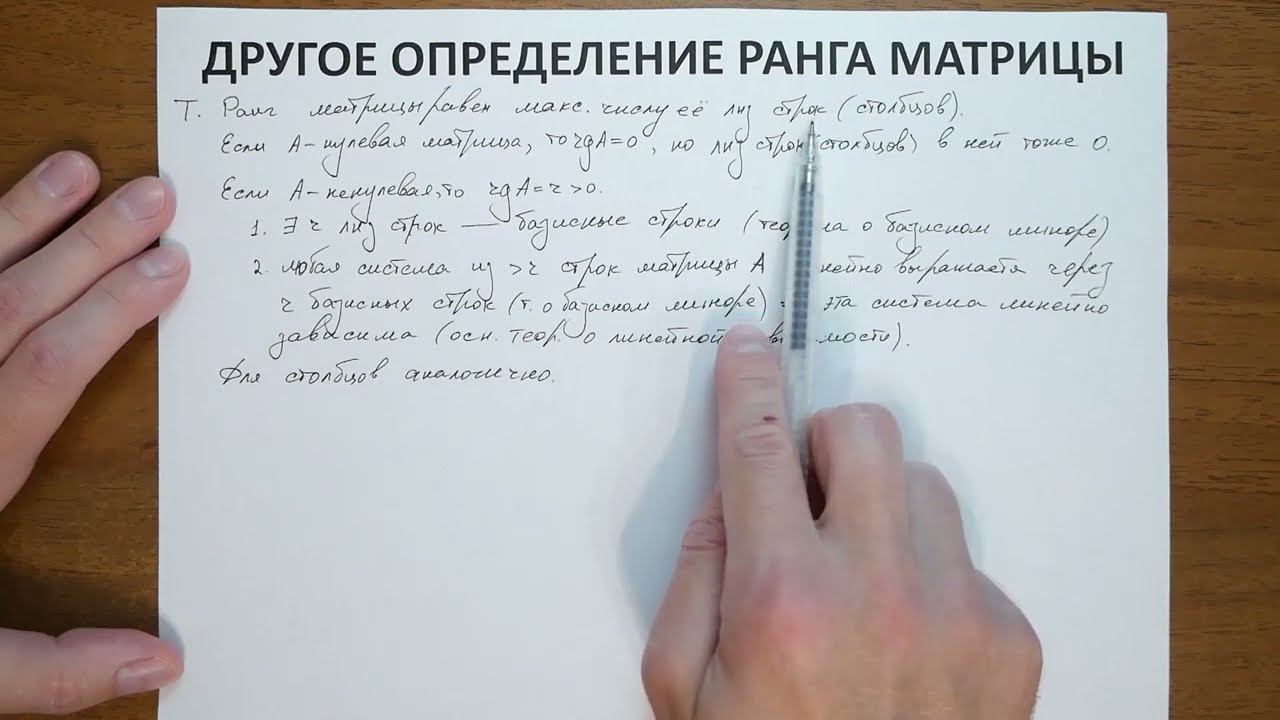 ДРУГОЕ ОПРЕДЕЛЕНИЕ РАНГА МАТРИЦЫ
Т. Ранг матрицы равен макс. числу её лнз строк (столбцов).
Если А-нулевая матрица, то rgA=0, но лнз строк (столбцов) в ней тоже 0.
Если А-ненулевая, то rgA=r>0.
1. ∃ r лнз строк — базисные строки (теор ма о базисном миноре)
2. любая система из >r строк матрицы А нейно выражается через
r базисных строк (т. о базисном миноре) эта система линейно
зависима (осн. теор. о линейной мости).
Для столбцов аналогично.